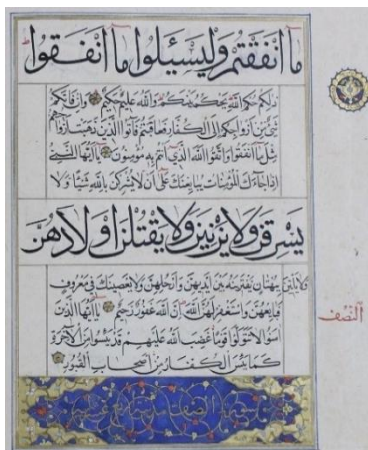 ما أنفقتم وليسئلوا ما أنفقوا
ذلكم حكم الله يحكم بينكم والله عليم حكيم وإن فاتكم
شيء من أزواجكم إلى الكفار فعاقبتم فآتوا الذين ذهبت أزواجهم
مثل ما أنفقوا واتقوا الله الذي أنتم به مؤمنون يا أيها النبي
إذا جاءك المؤمنات يبايعنك على أن لا يشركن بالله شيئا ولا
يسرقن ولا يزنين ولا يقتلن أولادهن
ولا يأتين ببهتان يفترينه بين أيديهن وأرجلهن ولا يعصينك في معروف
فبايعهن واستغفر لهن الله إن الله غفور رحيم يا أيها الذين
آمنوا لا تتولوا قوما غضب الله عليهم قد يئسوا من الآخرة
كما يئس الكفار من أصحاب القبور
النصف
سورة الصف